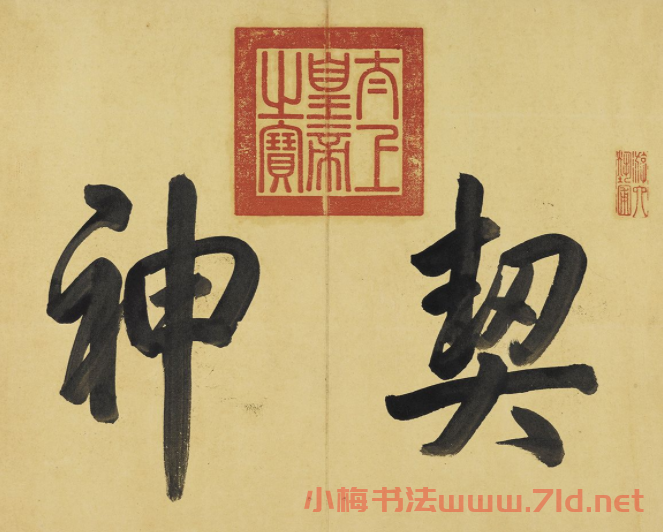 太上
皇帝
之寶
游六
藝圃
契神
小梅书法www.7ld.net